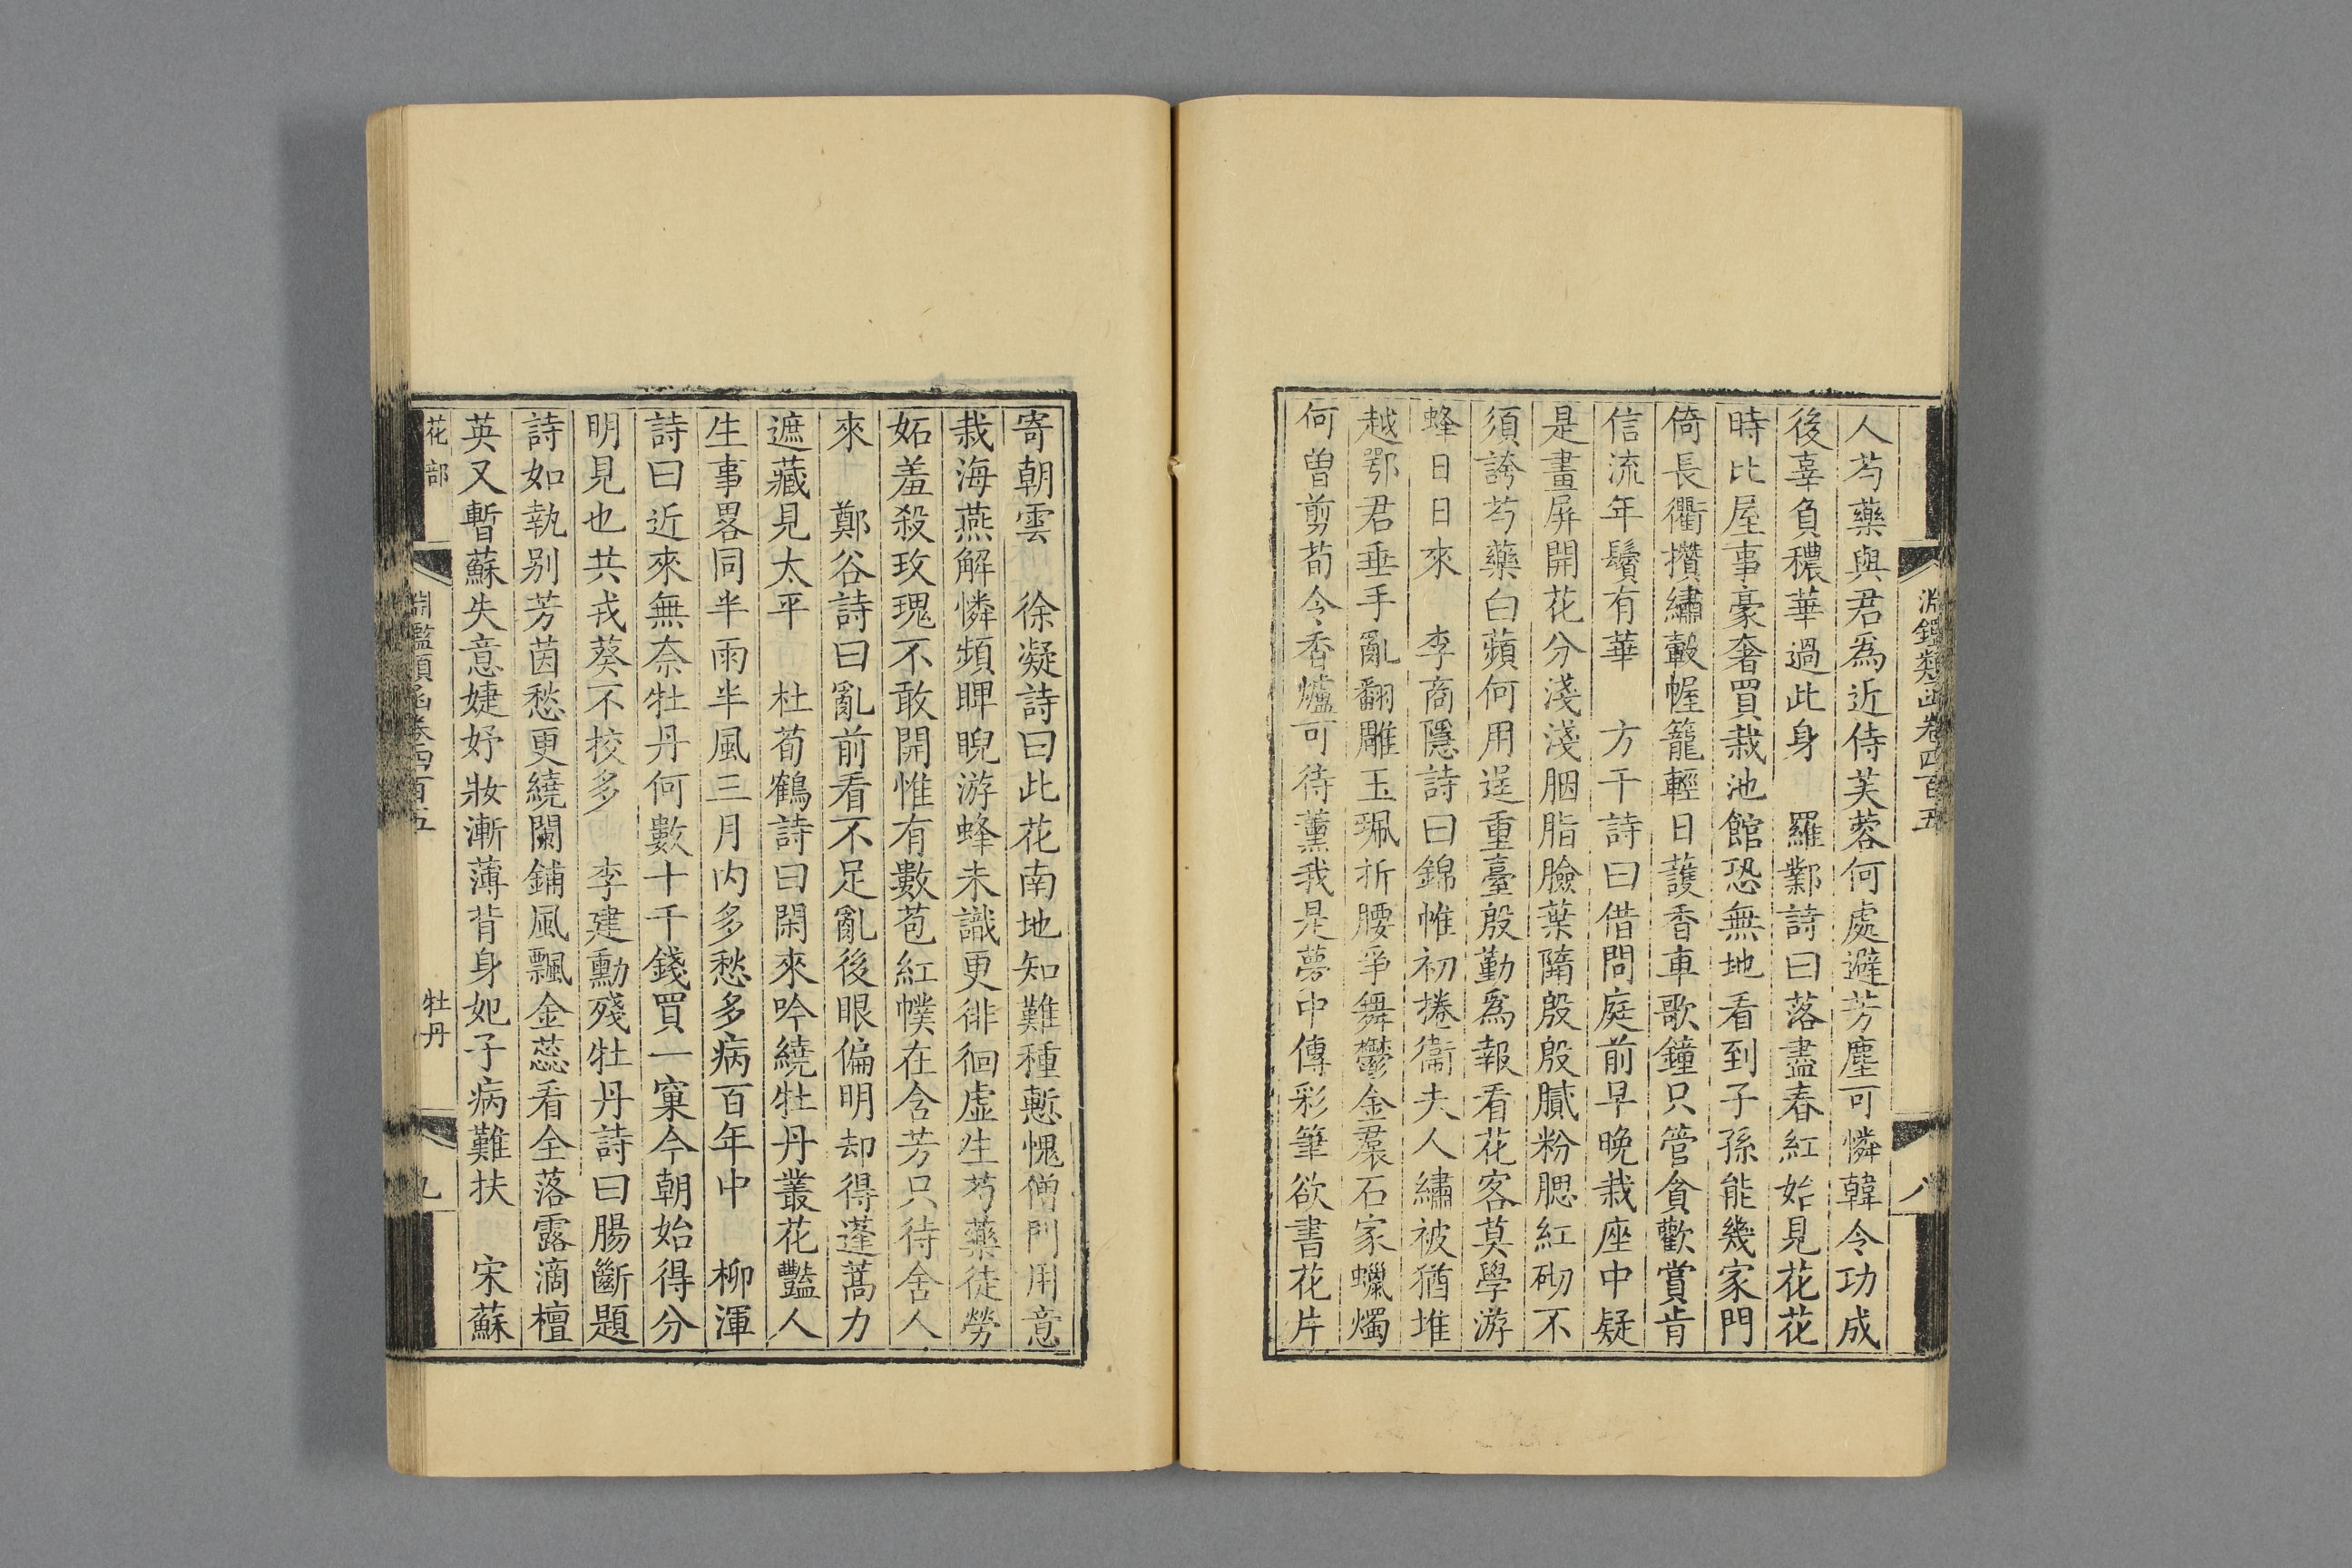 淵鑑類函卷四百五
八
人芍藥與君爲近侍芙蓉何處避芳塵可憐韓令功成
後辜負穠華過此身 羅鄴詩曰落盡春紅始見花花
時比屋事豪奢買栽池館恐無地看到子孫能幾家門
倚長衢攢繡轂幄籠輕日護香車歌鐘只管貪歡賞肯
信流年鬢有華 方干詩曰借問庭前早晚栽座中疑
是畫屏開花分淺淺胭脂臉葉隋殷殷膩粉腮紅砌不
須誇芍藥白蘋何用逞重臺殷勤爲報看花客莫學游
蜂日日來 李商隱詩曰錦帷初捲衞夫人繡被猶堆
越鄂君垂手亂翻雕玉珮折腰爭舞鬱金裙石家蠟燭
何曾剪荀令香爐可待薰我是夢中傳彩筆欲書花片
寄朝雲 徐凝詩曰此花南地知難種慙愧僧門用意
栽海燕解憐頻睥睨游蜂未識更徘徊虛生芍藥徒勞
妬羞殺玫瑰不敢開惟有數苞紅幞在含芳只待舍人
來 鄭谷詩曰亂前看不足亂後眼偏明却得蓬蒿力
遮藏見太平 杜荀鶴詩曰閑來吟繞牡丹叢花豔人
生事畧同半雨半風三月内多愁多病百年中 柳渾
詩曰近來無奈牡丹何數十千錢買一窠今朝始得分
明見也共戎葵不挍多 李建勳殘牡丹詩曰腸斷題
詩如執别芳茵愁更繞闌鋪風飄金蕊看全落露滴檀
英又暫蘇失意婕妤妝漸薄背身妃子病難扶 宋蘇
花部
淵鑑類函卷四百五
牡丹
九